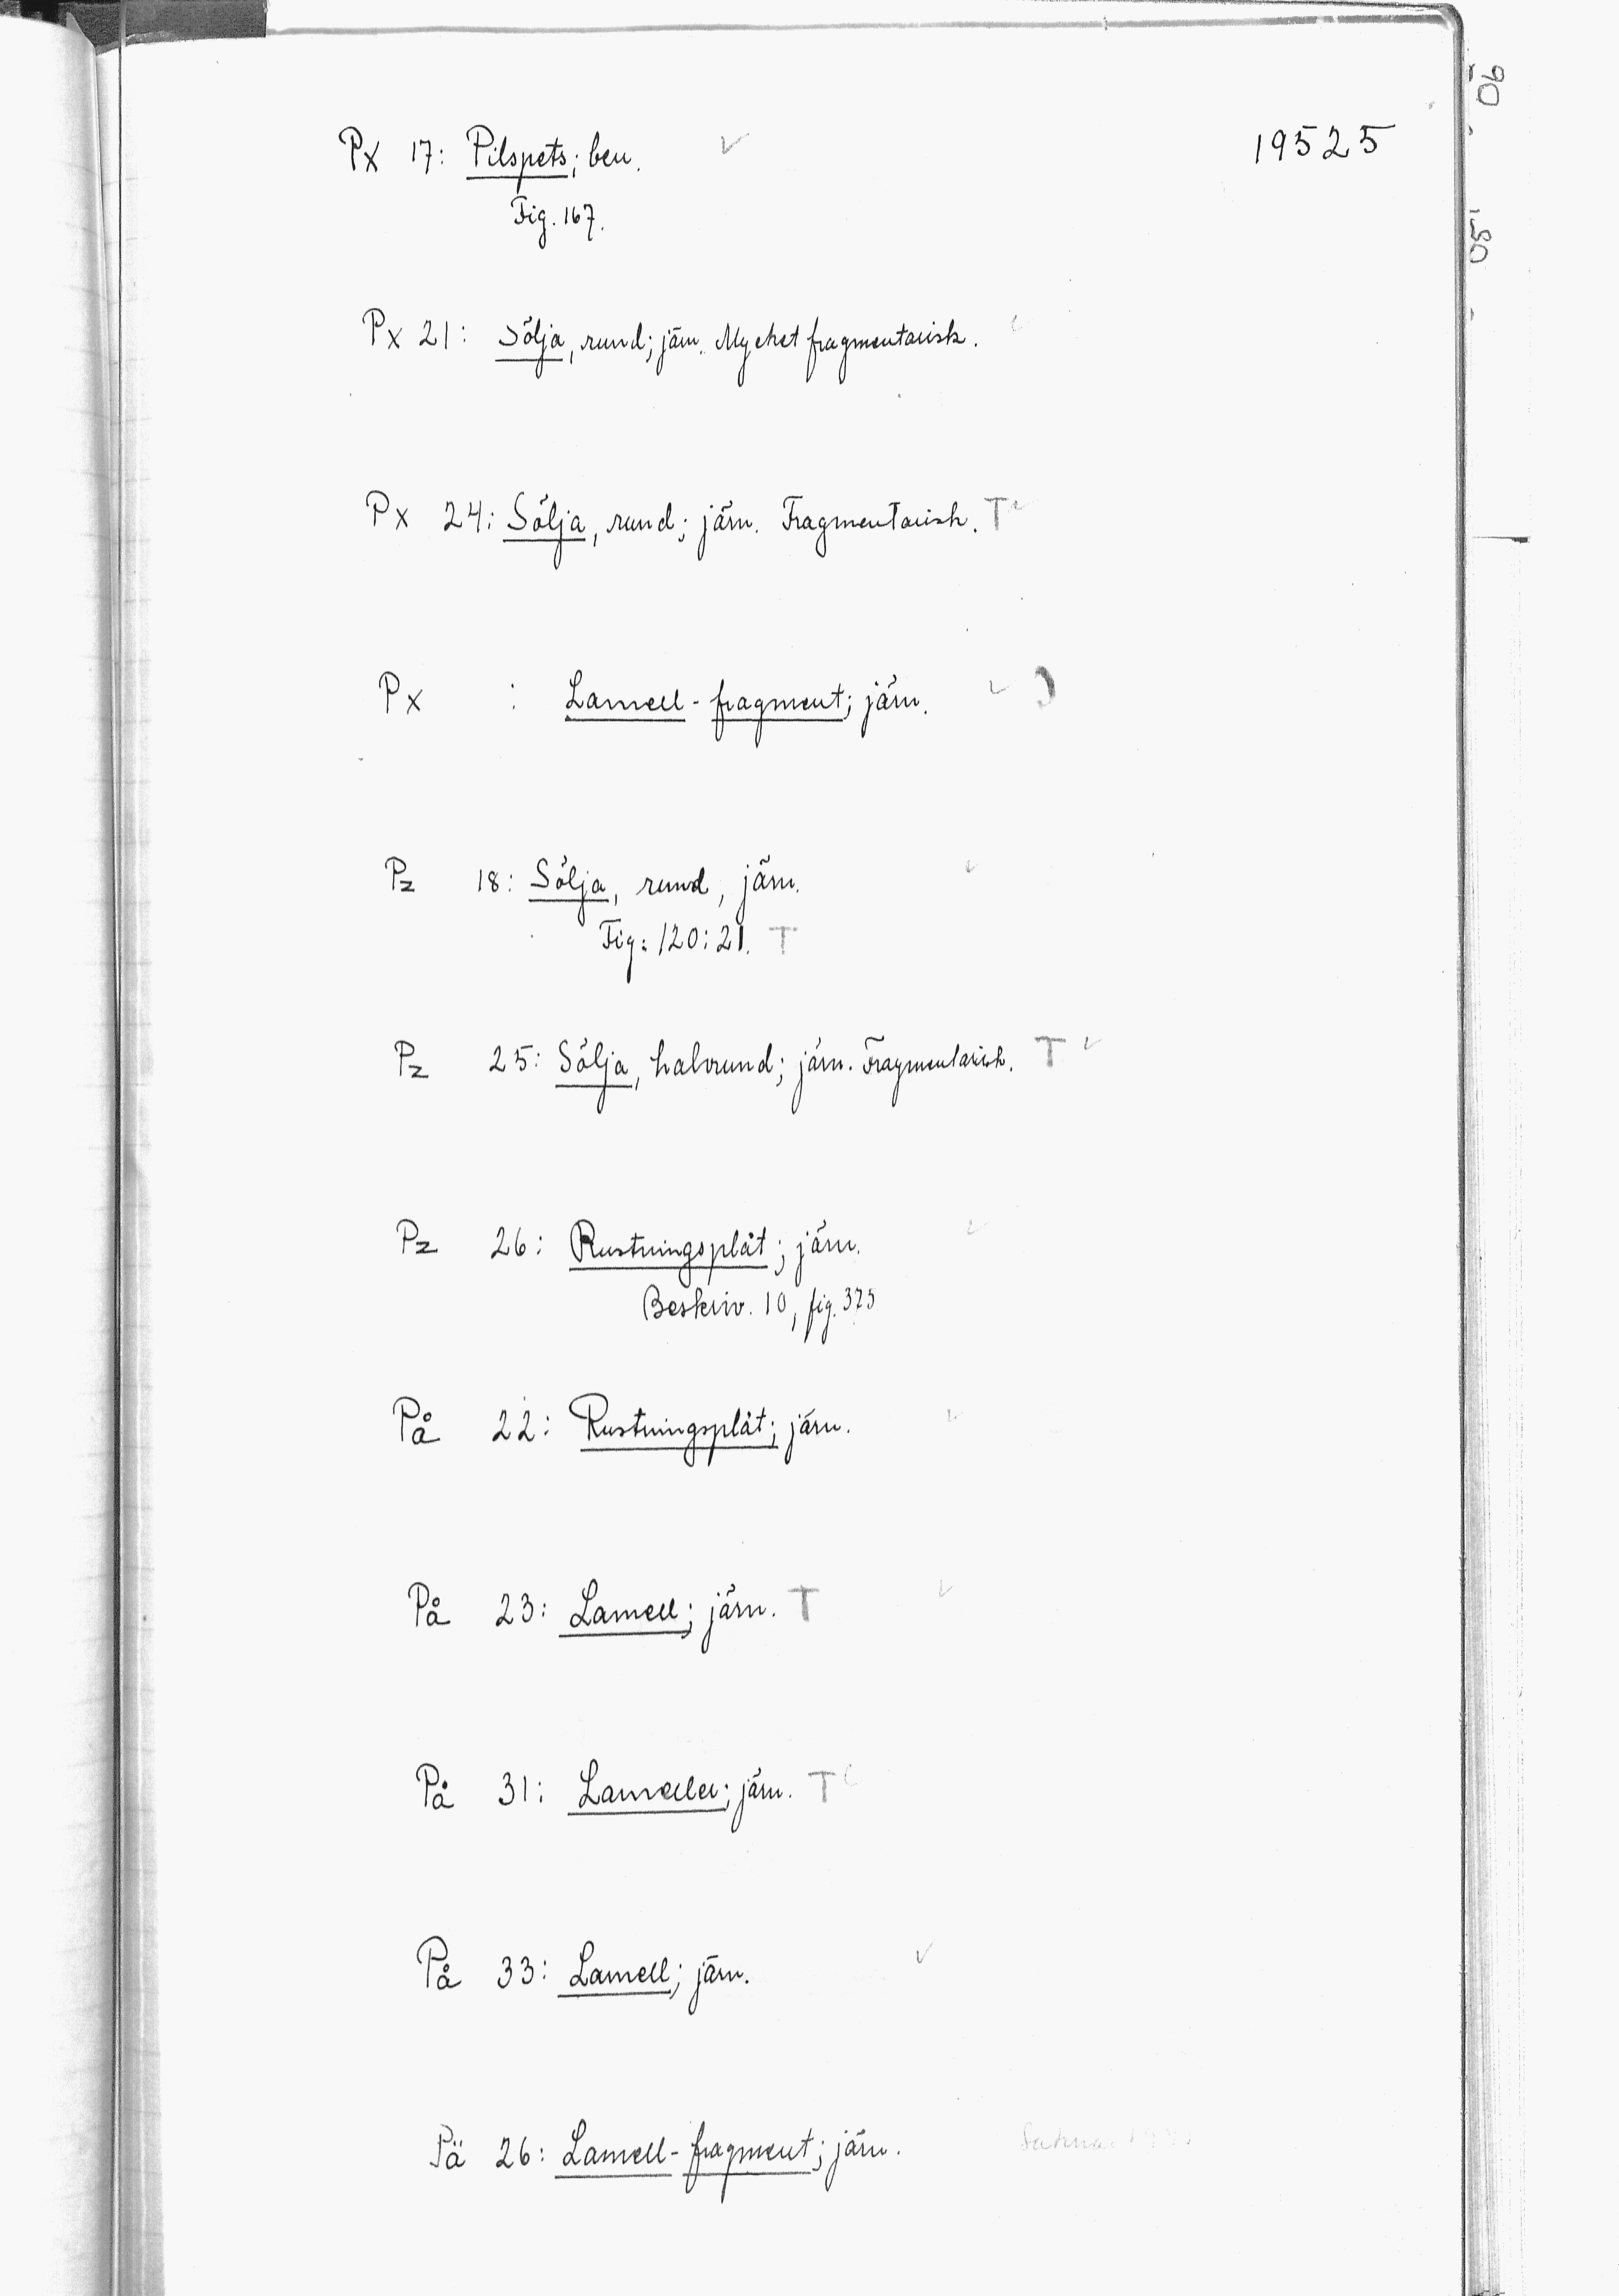 19525
Px 17: Pilspets; ben. ✓
Fig. 167.
Px 21: Sölja, rund; järn. Mycket fragmentarisk.
Px 24: Sölja, rund; järn. Fragmentarisk. T ✓
Px : Lamell-fragment; järn. ✓
Pz 18: Sölja, rund, järn. ✓
Fig: 120:21. T
Pz 25: Sölja, halvrund; järn. Fragmentarisk. T ✓
Pz 26: Rustningsplåt; järn. ✓
Beskriv. 10, fig. 373
På 22: Rustningsplåt; järn. ✓
På 23: Lamell; järn. T ✓
På 31: Lameller; järn. T
På 33: Lamell; järn. ✓
Pä 26: Lamell-fragment; järn.